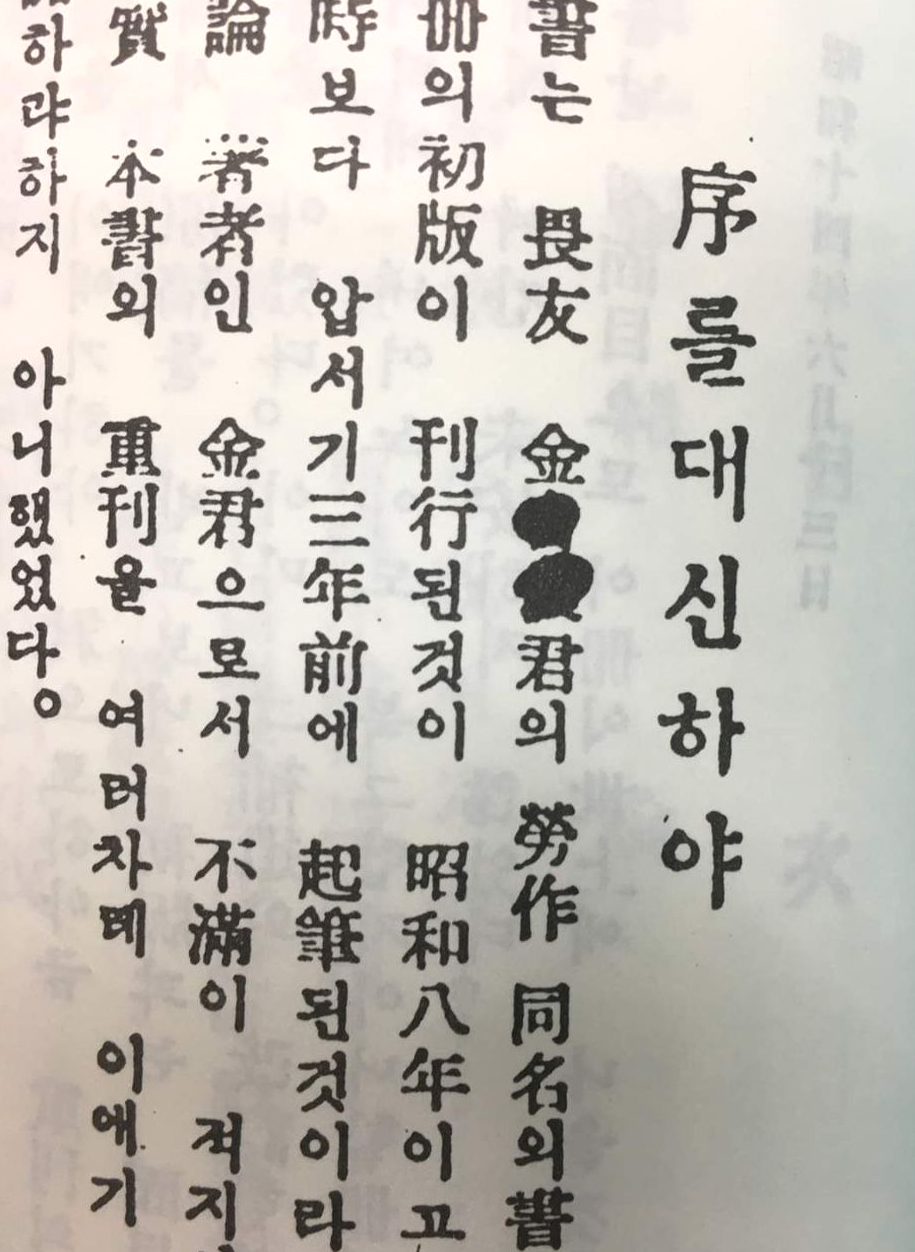 序를대신하야
書는 畏友 金 君의 勞作 同名의書
冊의初版이 刊行된것이 昭和八年이고
時보다 압서기三年前에 起筆된것이라
論 著者인 金君으로서 不滿이 적지
質 本書의 重刊을 여러차례 이얘기
하랴하지 아니했었다。